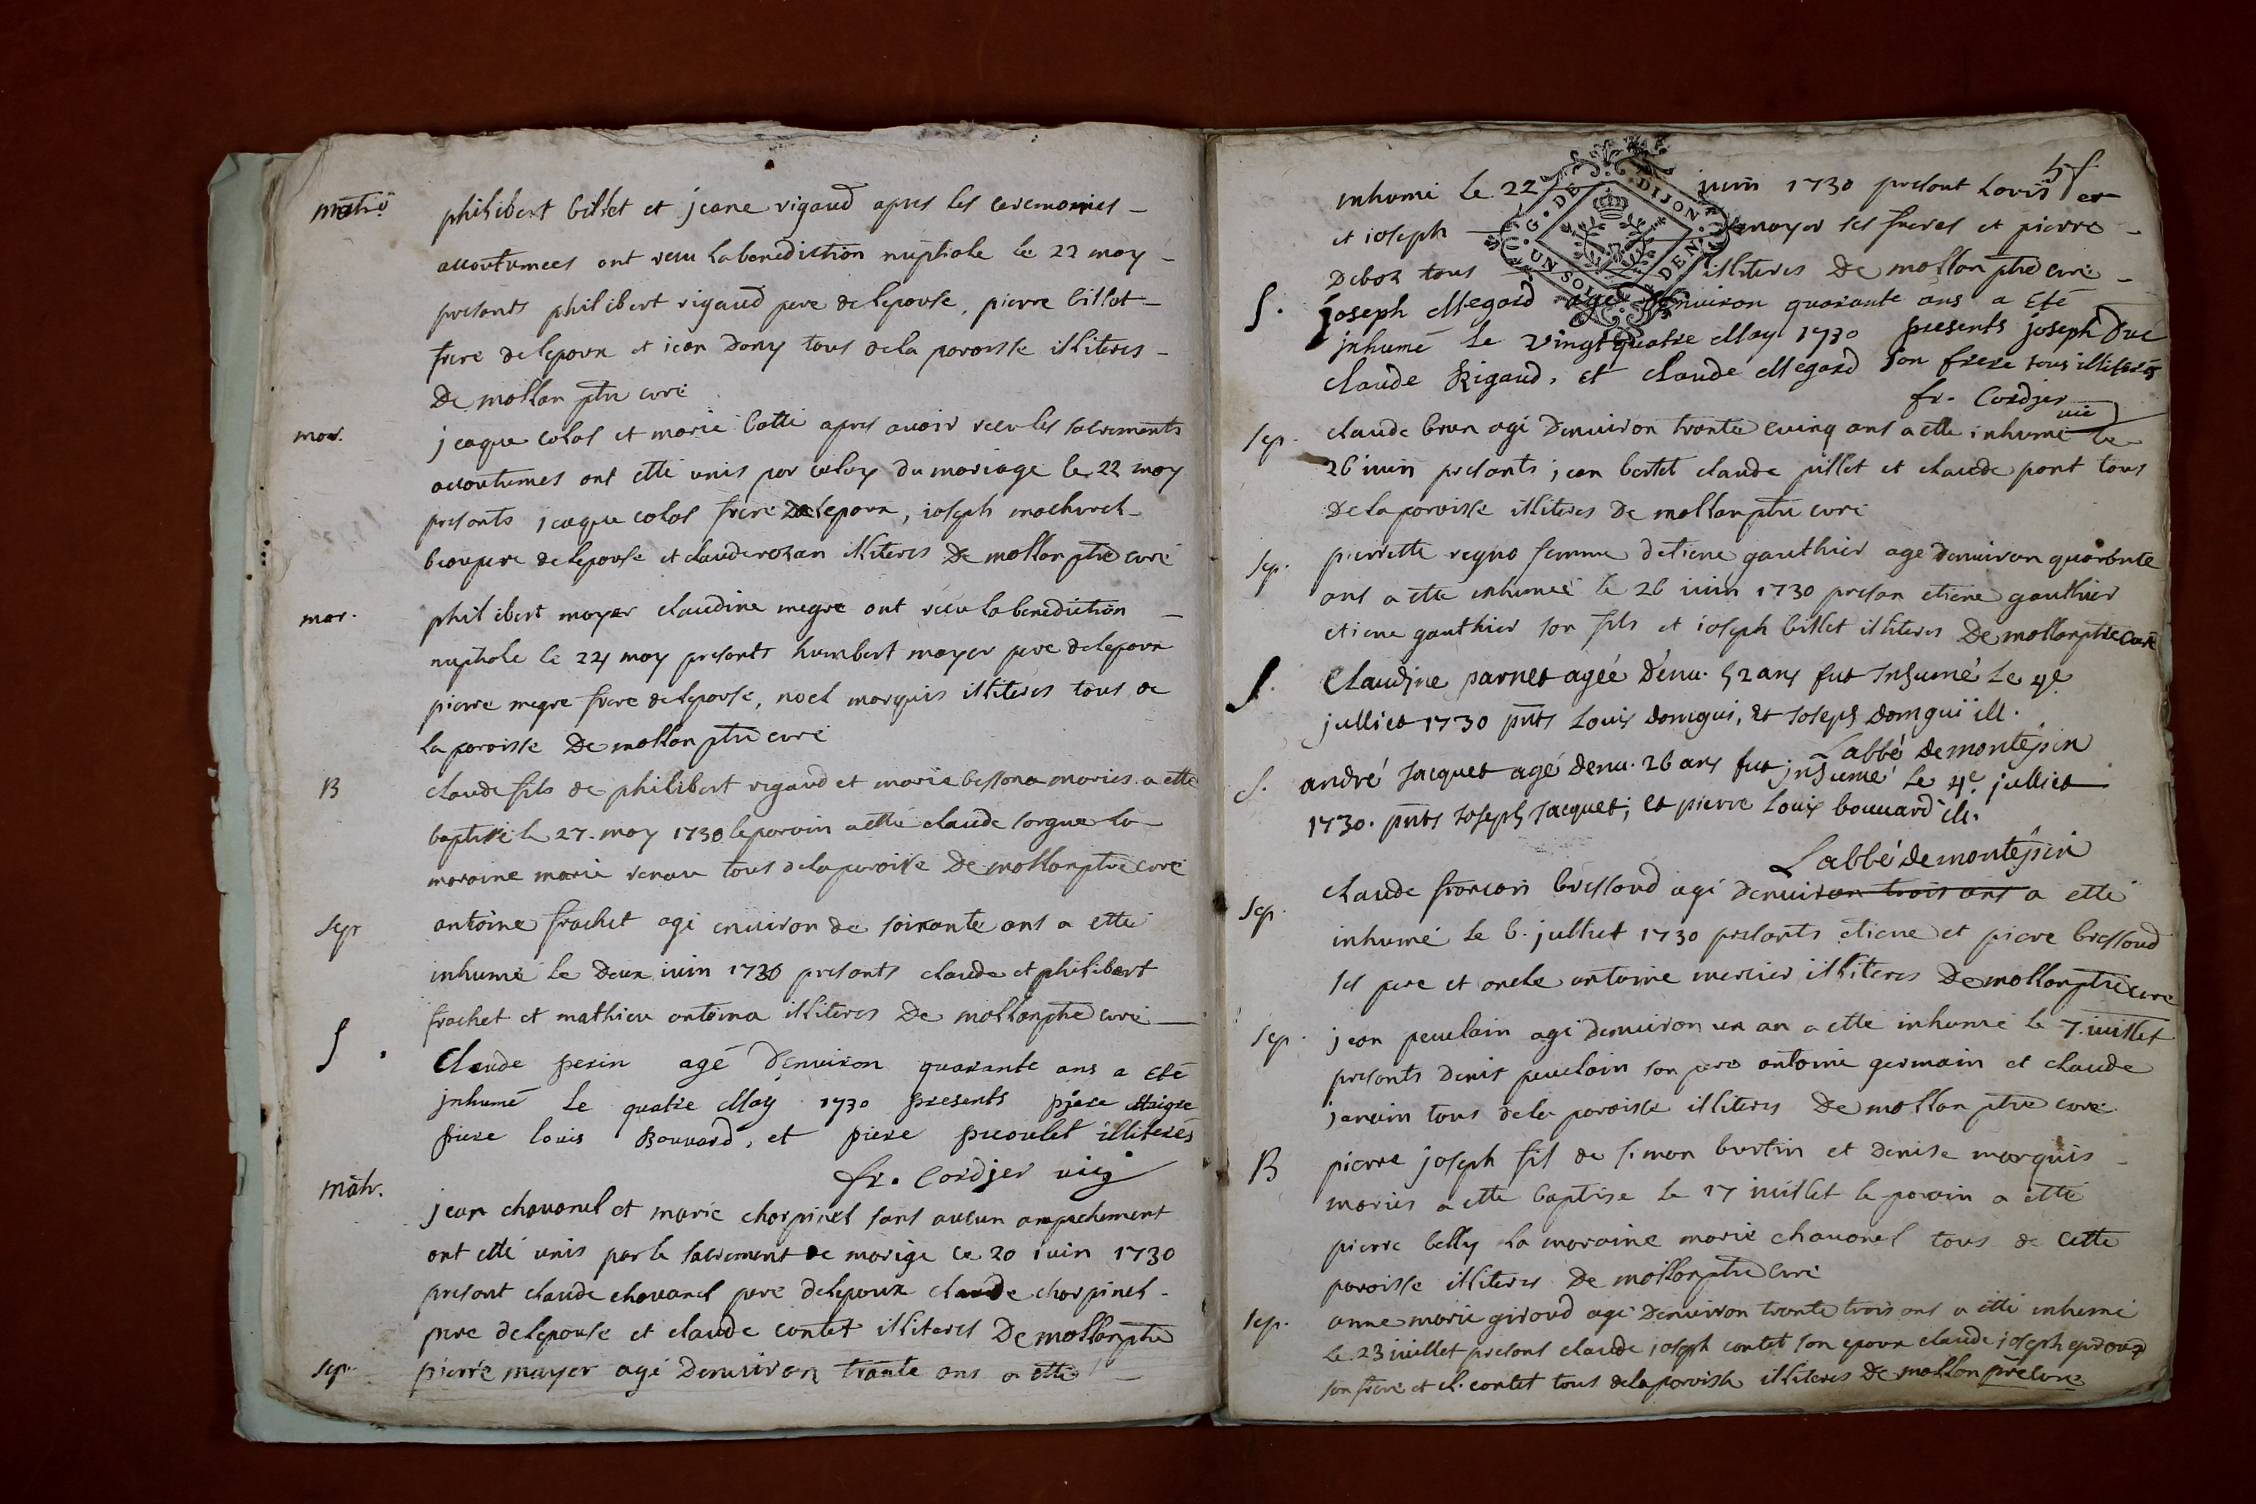 matri
philibert billet et jeane rigaud apres les ceremonies
accoutumees ont receu la benediction nuptiale le 22 may
presants philibert rigaud pere de lepouse, pierre billet
frere de lepoux et jean dony tous de la paroisse illiteres
De mollan ptre curé
mar.
jcaque colas et marie batti apres avoir receu les sacrements
accoutumes ont etté unis par celuy du mariage le 22 may
presants jcaque colas frere de lepoux, joseph
beaupere de lepouse et claude illiteres De mollan ptre curé
mar.
philibert mayer claudine megre ont receu la benediction
nuptiale le 24 may presants humbert mayer pere de lepoux
pierre megre frere de lepouse, noel marquis illiteres tous de
la paroisse De mollan ptre curé
B
claude fils de philibert rigaud et marie bessona maries a etté
baptisé le 27 may 1730 le parain a etté claude sorgue la
maraine marie tous de la paroisse De mollan ptre curé
sep
antoine frachet agé environ de soixante ans a etté
inhumé le deux iuin 1730 presants claude et philibert
frachet et mathieu antoina illiteres De mollan ptre curé
S.
Claude perin agé Denviron quarante ans a eté
jnhumé Le quatre May 1730 presents pjere Maigre
piere louis Bouvard, et piere illiterés
fr. Cordjer vic
mar.
jean chavanel et marie charpinel sans aucun ampechement
ont etté unis par le sacrement de marige le 20 iuin 1730
presant claude chavanel pere de lepoux claude charpinel
pere de lepouse et claude contet illiteres De mollan ptre
sep.
pierre mayer agé Denviron trante ans a etté
inhumé le 22 iuin 1730 presant Louis et
et ioseph mayer ses freres et pierre
Debox tous illiteres De mollan ptre curé
G. DE DIJON
UN SOL DEN
S.
joseph Megard agé Denviron quarante ans a Eté
jnhumé Le vingt quatre May 1730 presents joseph Duc
claude Rigaud, et claude Megard son frere tous illiterés
fr. Cordjer vic
sep.
claude brun agé Denviron trante cuinq ans a etté inhumé le
26 iuin presants jean bertet claude pillet et claude pont tous
De la paroisse illiteres De mollan ptre curé
sep.
pierrette reyno femme detiene gauthier age Denviron quarante
ans a etté inhumée le 26 iuin 1730 presan etiene gauthier
etiene gauthier son fils et ioseph billet illiteres De mollan ptre curé
S.
Claudine parnet agée D'enu. 52 ans fut Inhumé Le 4e
julliet 1730 pnts Louis domgui, Et Joseph Domgui ill.
Labbé de montépin
S.
andré Jacquet agé denu. 26 ans fut jnhumé Le 4e julliet
1730. pnts Joseph Jacquet; et pierre Louis bouuard ill.
Labbé de montépin
sep.
claude francois bressoud agé Denviron trois ans a etté
inhumé Le 6. julliet 1730 presants etiene et piere bressoud
ses pere et oncle antoine mercier illiteres De mollan ptre curé
sep.
jean peuclain agé Denviron un an a etté inhumé le 7. iuillet
presants Denis peuclain son pere antoine germain et claude
janvin tous de la paroisse illiteres De mollan ptre curé
B
pierre joseph fil de simon burtin et denise marquis
maries a etté baptise le 17 iuillet le parain a etté
pierre belly la maraine marie chavanel tous de cette
paroisse illiteres De mollan ptre curé
sep.
anne marie giroud agé Denviron trante trois ans a etté inhumé
le 23 iuillet presans claude joseph contet son epoux claude joseph giroud
son frere et cl. contet tous de la paroisse illiteres De mollan ptre curé